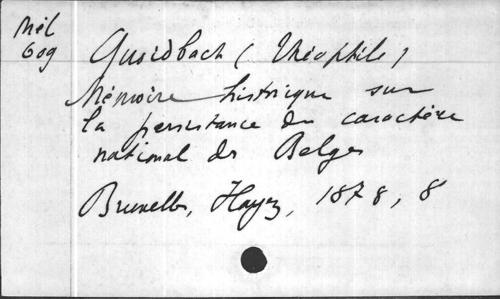 Mél
609
Qusidbach (Théophile)
Mémoire historique sur
la persistance du caractère
national des Belges
Bruxelles, Hayez, 1878, 8